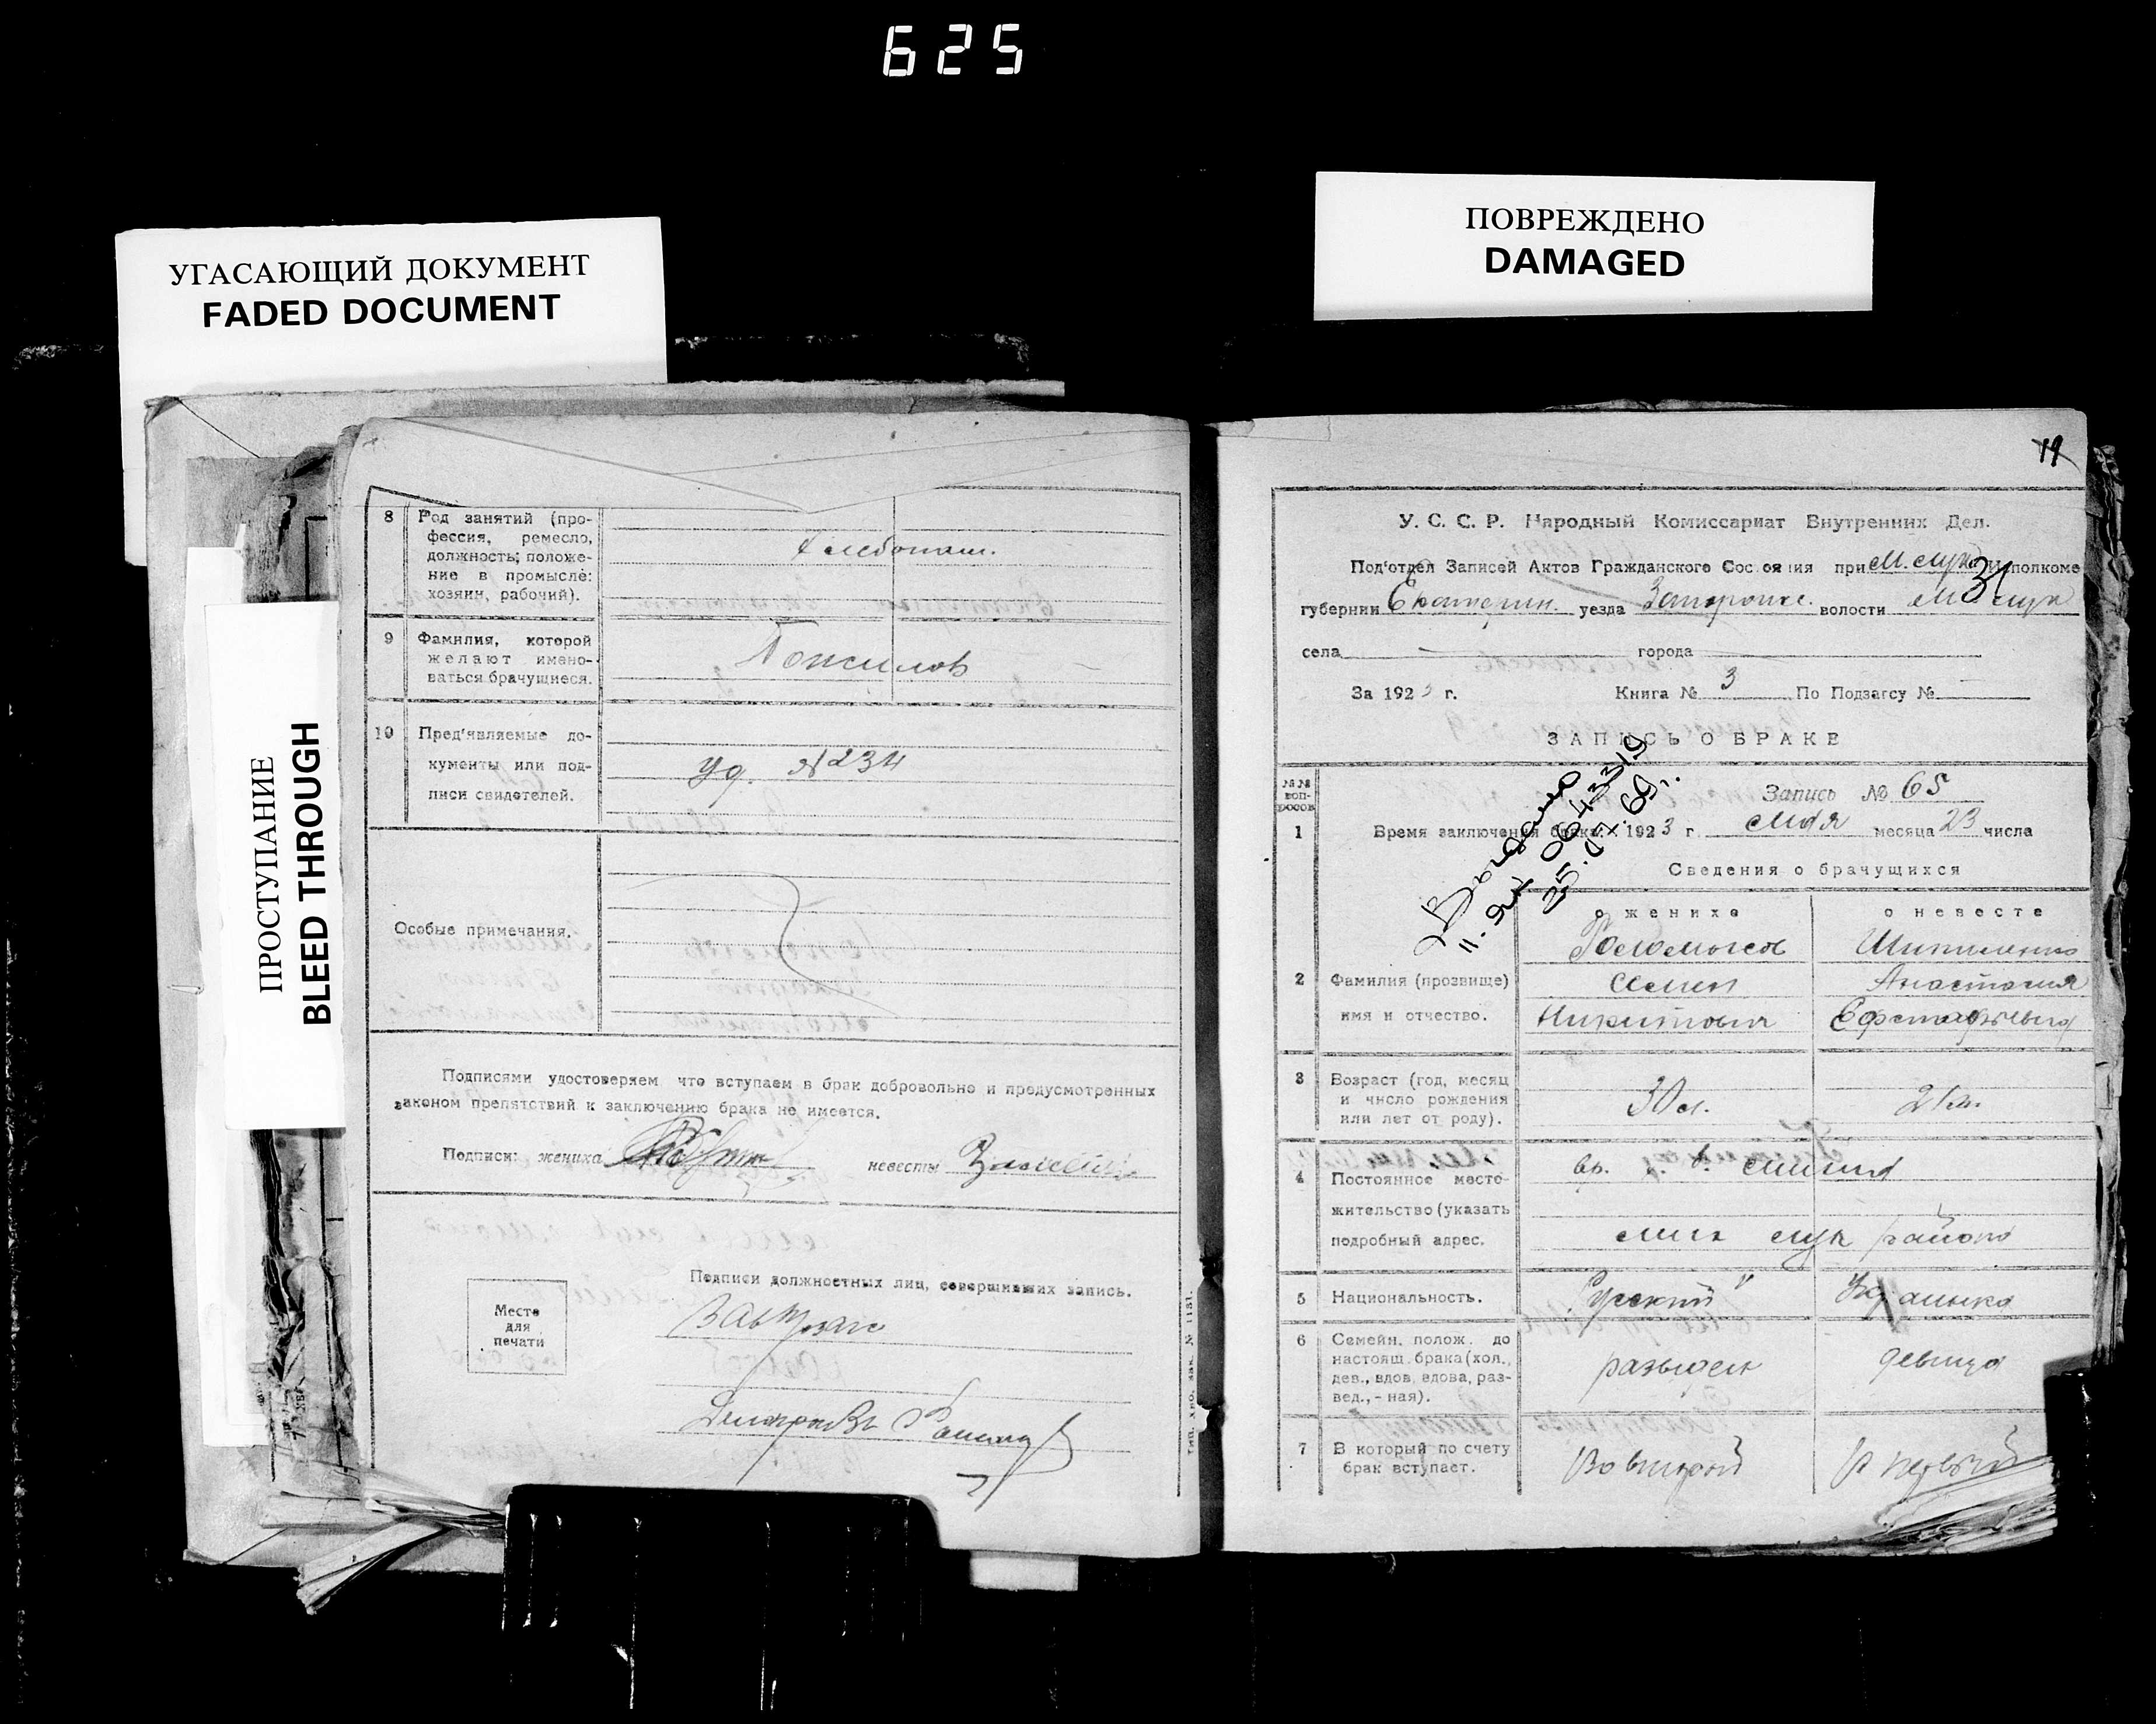 625
УГАСАЮЩИЙ ДОКУМЕНТ
FADED DOCUMENT
ПОВРЕЖДЕНО
DAMAGED
ПРОСТУПАНИЕ
BLEED THROUGH
8 Род занятий (про-
фессия, ремесло,
должность; положе-
ние в промысле:
хозяин, рабочий).
Хлебопаш.
9 Фамилия, которой
желают имено-
ваться брачущиеся.
10 Пред'являемые до-
кументы или под-
писи свидетелей.
Уд. № 234
Особые примечания.
Подписями удостоверяем что вступаем в брак добровольно и предусмотренных
законом препятствий к заключению брака не имеется.
Подписи: жениха невесты
Подписи должностных лиц, совершивших запись.
Место
для
печати
Завзагс
Тип. хво, зак. № 1131.
19
У. С. С. Р. Народный Комиссариат Внутренних Дел.
Под'отдел Записей Актов Гражданского Состояния при Исполкоме
31
губернии Екатерин. уезда Запорожс. волости
села города
За 1923 г. Книга № 3 По Подзагсу №
ЗАПИСЬ О БРАКЕ
№№
воп-
росов
Запись № 65
1 Время заключения брака: 1923 г. мая месяца 23 числа
Выдано
II. ЯИ 0643319
25. IX. 69 г.
Сведения о брачущихся
о женихе о невесте
2 Фамилия (прозвище)
имя и отчество.
Семен Анастасия
Никитович Евстафьевна
3 Возраст (год, месяц
и число рождения
или лет от роду).
30 л. 21 л.
4 Постоянное место-
жительство (указать
подробный адрес.
района
5 Национальность. Русский Украинка
6 Семейн. полож. до
настоящ. брака (хол.,
дев., вдов, вдова, раз-
вед., - ная).
разведен девица
7 В который по счету
брак вступает.
Во второй В первый